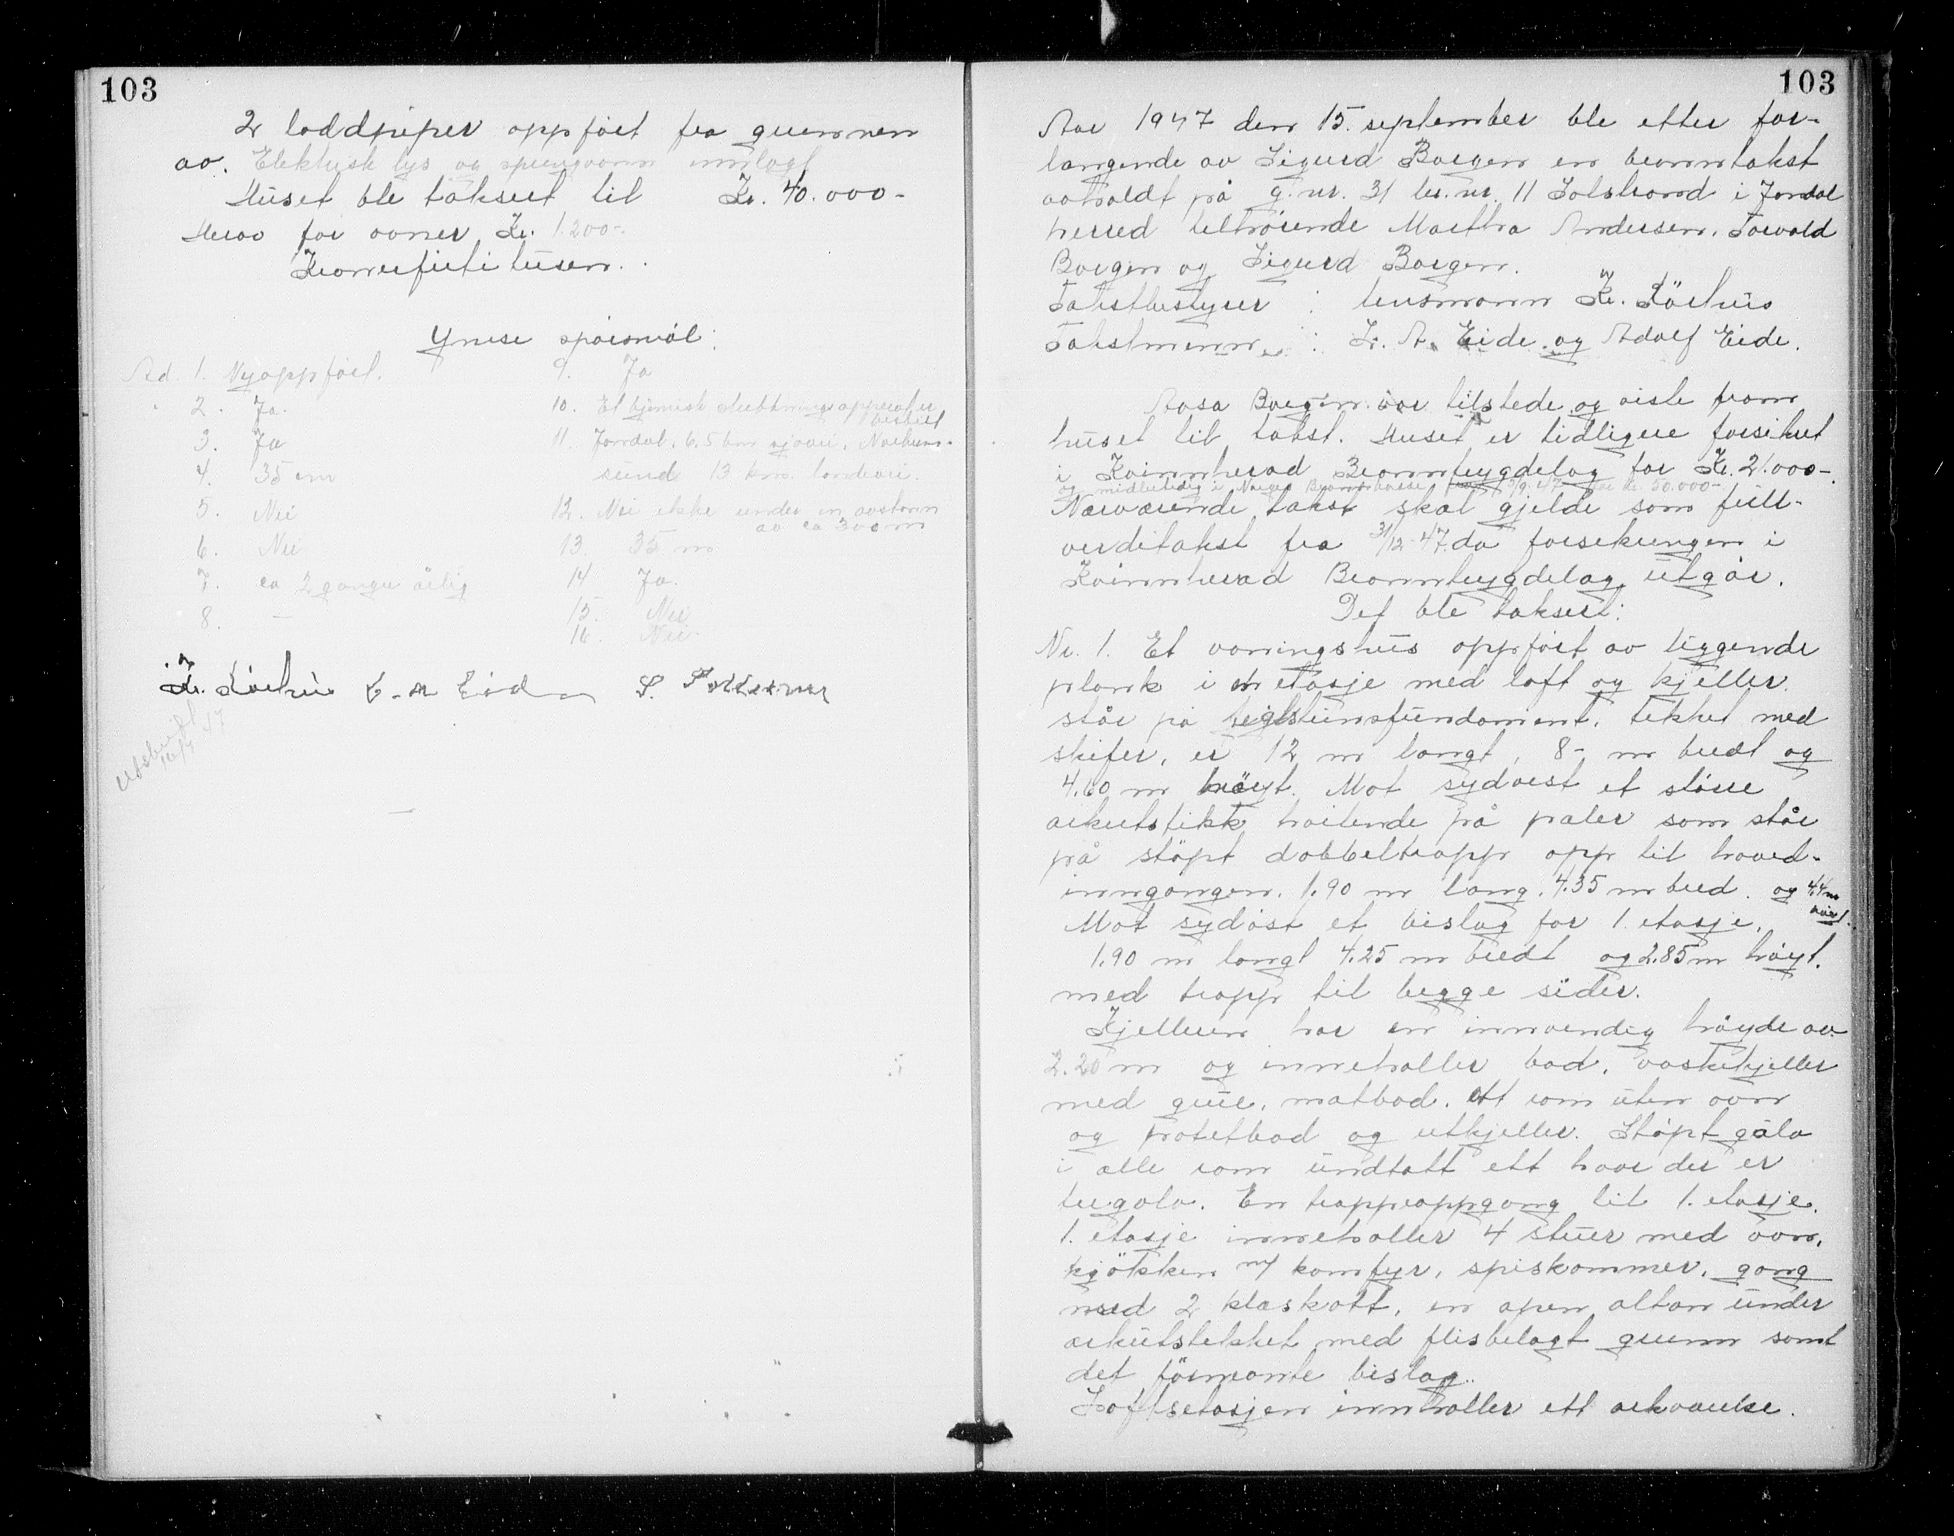 103
2 loddpiper oppført fra grunnen
av. Elektrisk lys og springvann innlagt
Huset ble taksert til Kr. 40.000-
Herav for ovner Kr. 1.200-
Kroner førti tusen.
Ymse spørsmål:
Ad. 1. Nyoppført.
2. Ja.
3. Ja
4. 35 cm
5. Nei
6. Nei
7. ca 2 ganger årlig
8. -
9. Ja
10. Et kjemisk slukkningsapparat er
bestilt
11. Jondal. 6.5 km sjøvei, Norheim-
sund 13 km. landvei.
12. Nei ikke under en avstann
av ca 300 m
13. 35 m
14 Ja.
15. Nei
16. Nei.
Kr. Sørhus L. A. Eide S.
Utskrift
16/9 47
103
Aar 1947 den 15. september ble etter for-
langende av Sigurd Borgen en branntakst
avholdt på g.nr. 31 br.nr. 11 Solstrand i Jondal
herred tilhørende Martha Andersen, Torvald
Borgen og Sigurd Borgen.
Takstbestyrer : lensmann Kr. Sørhus
Takstmenn : L. A. Eide og Adolf Eide.
Aasa Borgen var tilstede og viste fram
huset til takst. Huset er tidligere forsikret
i Kvinnherad Brannbygdelag for Kr. 21.000-
og midlertidig i Norges Brannkasse fra 9/9.47 for kr. 50.000-
Nærværende takst skal gjelde som full-
verditakst fra 31/12-47 da forsikringen i
Kvinnherad Brannbygdelag utgår.
Det ble taksert:
Nr. 1. Et våningshus oppført av liggende
plank i en etasje med loft og kjeller
står på teglstensfundament, tekket med
skifer, er 12 m langt, 8- m bredt og
4.60 m høyt. Mot sydvest et større
arkutstikk hvilende på pæler som står
på støpt dobbeltrapp opp til hoved-
inngangen. 1.90 m lang. 4.35 m bred. og 4.4 m
høit.
Mot sydøst et bislag for 1. etasje,
1.90 m langt 4.25 m bredt og 2.85 m høyt.
med trapp til begge sider.
Kjelleren har en innvendig høyde av
2.20 m og inneholler bad, vaskekjeller
med grue, matbod, ett rom uten ovn
og potetbod og utkjeller. Støpt golv
i alle rom undtatt ett hvor der er
tregolv. En trappeoppgang til 1. etasje.
1. etasje inneholler 4 stuer med ovn,
kjøkken m/ komfyr, spiskammer, gang
med 2 kleskott, en åpen altan under
arkutstikket med flisbelagt grunn samt
det førnevnte bislag.
Loftsetasjen innholler ett arkværelse.